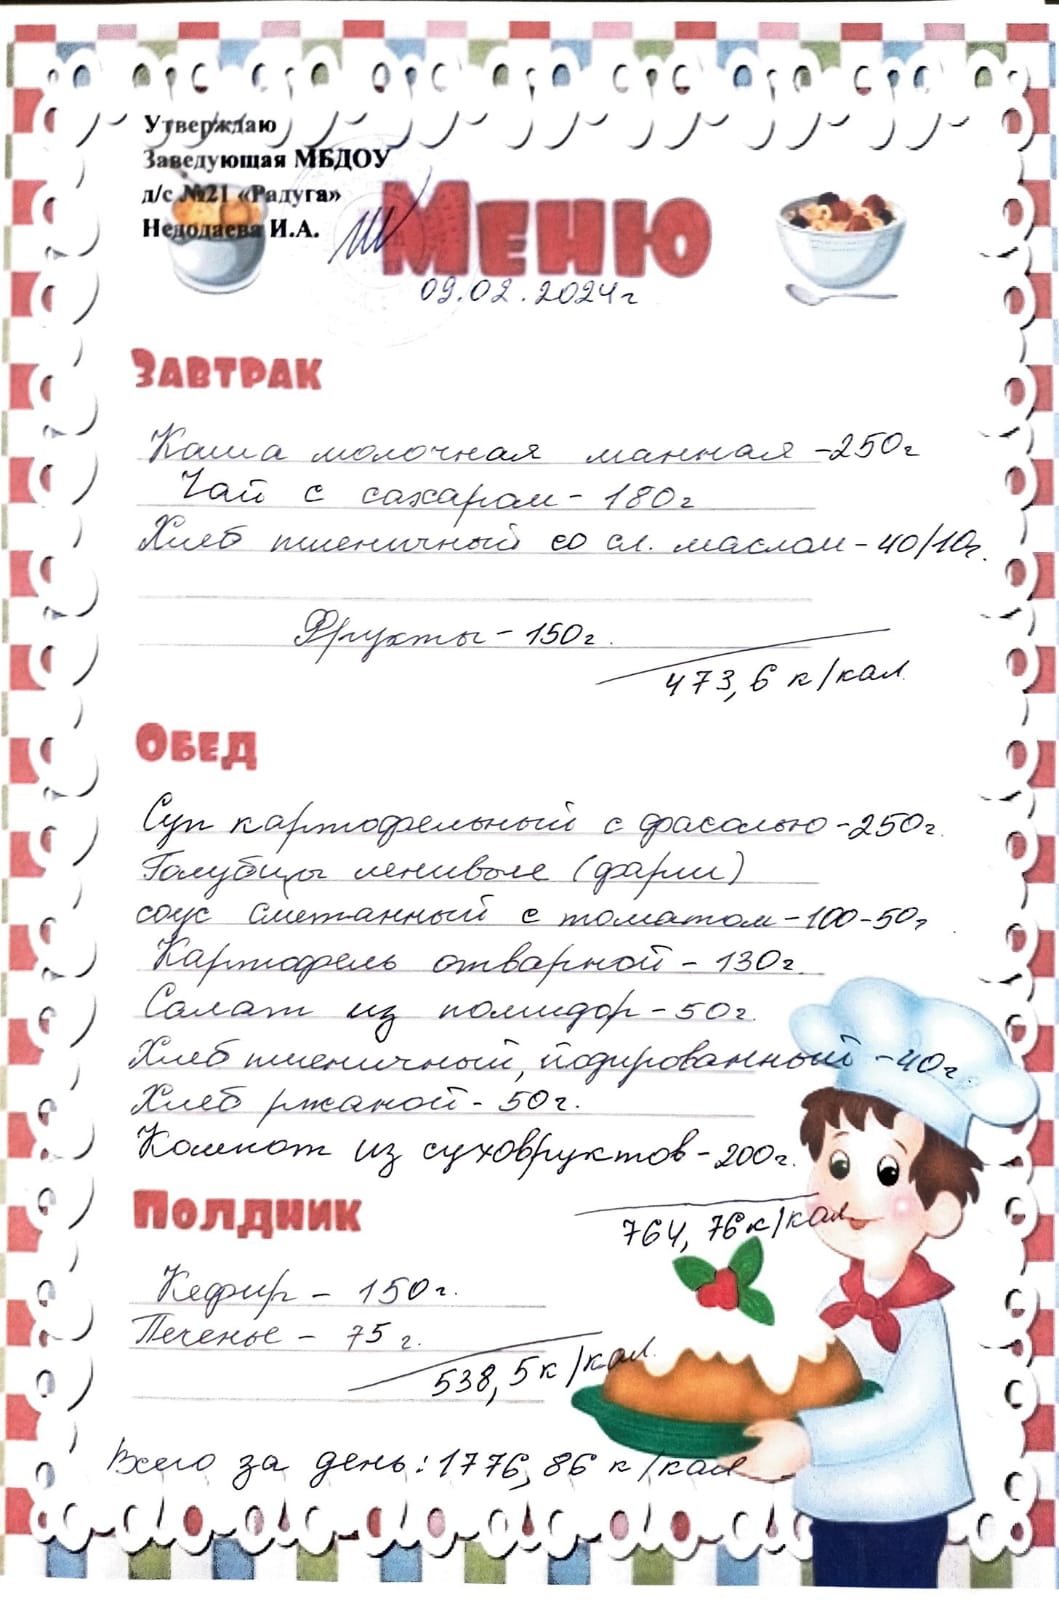 Утверждаю
Заведующая МБДОУ
д/с №21 «Радуга»
Недодаева И.А.
Меню
09.02.2024г
Завтрак
Каша молочная манная - 250г
Чай с сахаром - 180г
Хлеб пшеничный со сл. маслом - 40/10г.
Фрукты - 150г.
473,6 к/кал
Обед
Суп картофельный с фасолью - 250г.
Голубцы ленивые (фарш)
соус сметанный с томатом - 100-50г
Картофель отварной - 130г.
Салат из помидор - 50г.
Хлеб пшеничный, йодированный - 40г.
Хлеб ржаной - 50г.
Компот из сухофруктов - 200г.
764,76 к/кал
Полдник
Кефир - 150г.
Печенье - 75 г.
538,5 к/кал.
Всего за день: 1776,86 к/кал